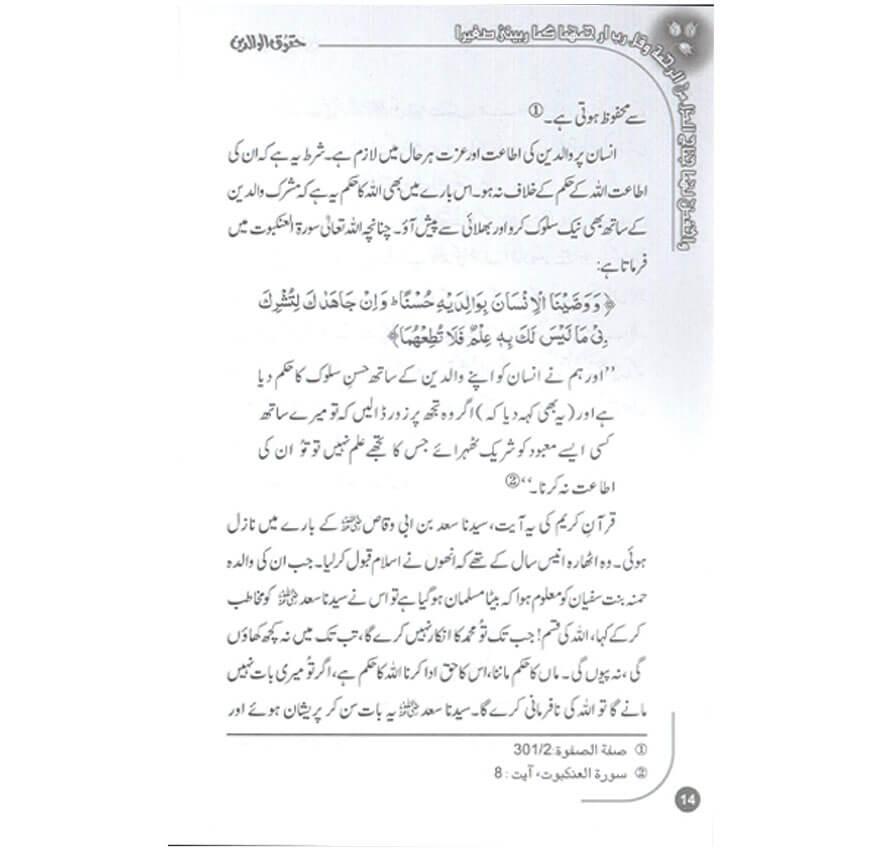 حقوق الوالدین
واخفض لهما جناح الذل من الرحمة وقل رب ارحمهما كما ربيني صغيرا
سے محفوظ ہوتی ہے۔ ①
انسان پر والدین کی اطاعت اور عزت ہر حال میں لازم ہے۔ شرط یہ ہے کہ ان کی
اطاعت اللہ کے حکم کے خلاف نہ ہو۔ اس بارے میں بھی اللہ کا حکم یہ ہے کہ مشرک والدین
کے ساتھ بھی نیک سلوک کرو اور بھلائی سے پیش آؤ۔ چنانچہ اللہ تعالیٰ سورۃ العنکبوت میں
فرماتا ہے:
﴿ وَوَصَّيْنَا الْاِنْسَانَ بِوَالِدَيْهِ حُسْنًا ؕ وَاِنْ جَاهَدٰكَ لِتُشْرِكَ
بِيْ مَا لَيْسَ لَكَ بِهٖ عِلْمٌ فَلَا تُطِعْهُمَا﴾
’’اور ہم نے انسان کو اپنے والدین کے ساتھ حسنِ سلوک کا حکم دیا
ہے اور (یہ بھی کہہ دیا کہ) اگر وہ تجھ پر زور ڈالیں کہ تو میرے ساتھ
کسی ایسے معبود کو شریک ٹھہرائے جس کا تجھے علم نہیں تو تُو ان کی
اطاعت نہ کرنا۔‘‘ ②
قرآنِ کریم کی یہ آیت، سیدنا سعد بن ابی وقاص ؓ کے بارے میں نازل
ہوئی۔ وہ اٹھارہ انیس سال کے تھے کہ انھوں نے اسلام قبول کر لیا۔ جب ان کی والدہ
حمنہ بنت سفیان کو معلوم ہوا کہ بیٹا مسلمان ہو گیا ہے تو اس نے سیدنا سعد ؓ کو مخاطب
کر کے کہا، اللہ کی قسم! جب تک تُو محمد کا انکار نہیں کرے گا، تب تک میں نہ کچھ کھاؤں
گی، نہ پیوں گی۔ ماں کا حکم ماننا، اس کا حق ادا کرنا اللہ کا حکم ہے، اگر تُو میری بات نہیں
مانے گا تو اللہ کی نافرمانی کرے گا۔ سیدنا سعد ؓ یہ بات سن کر پریشان ہوئے اور
① صفة الصفوة: 301/2
② سورة العنكبوت، آیت : 8
14